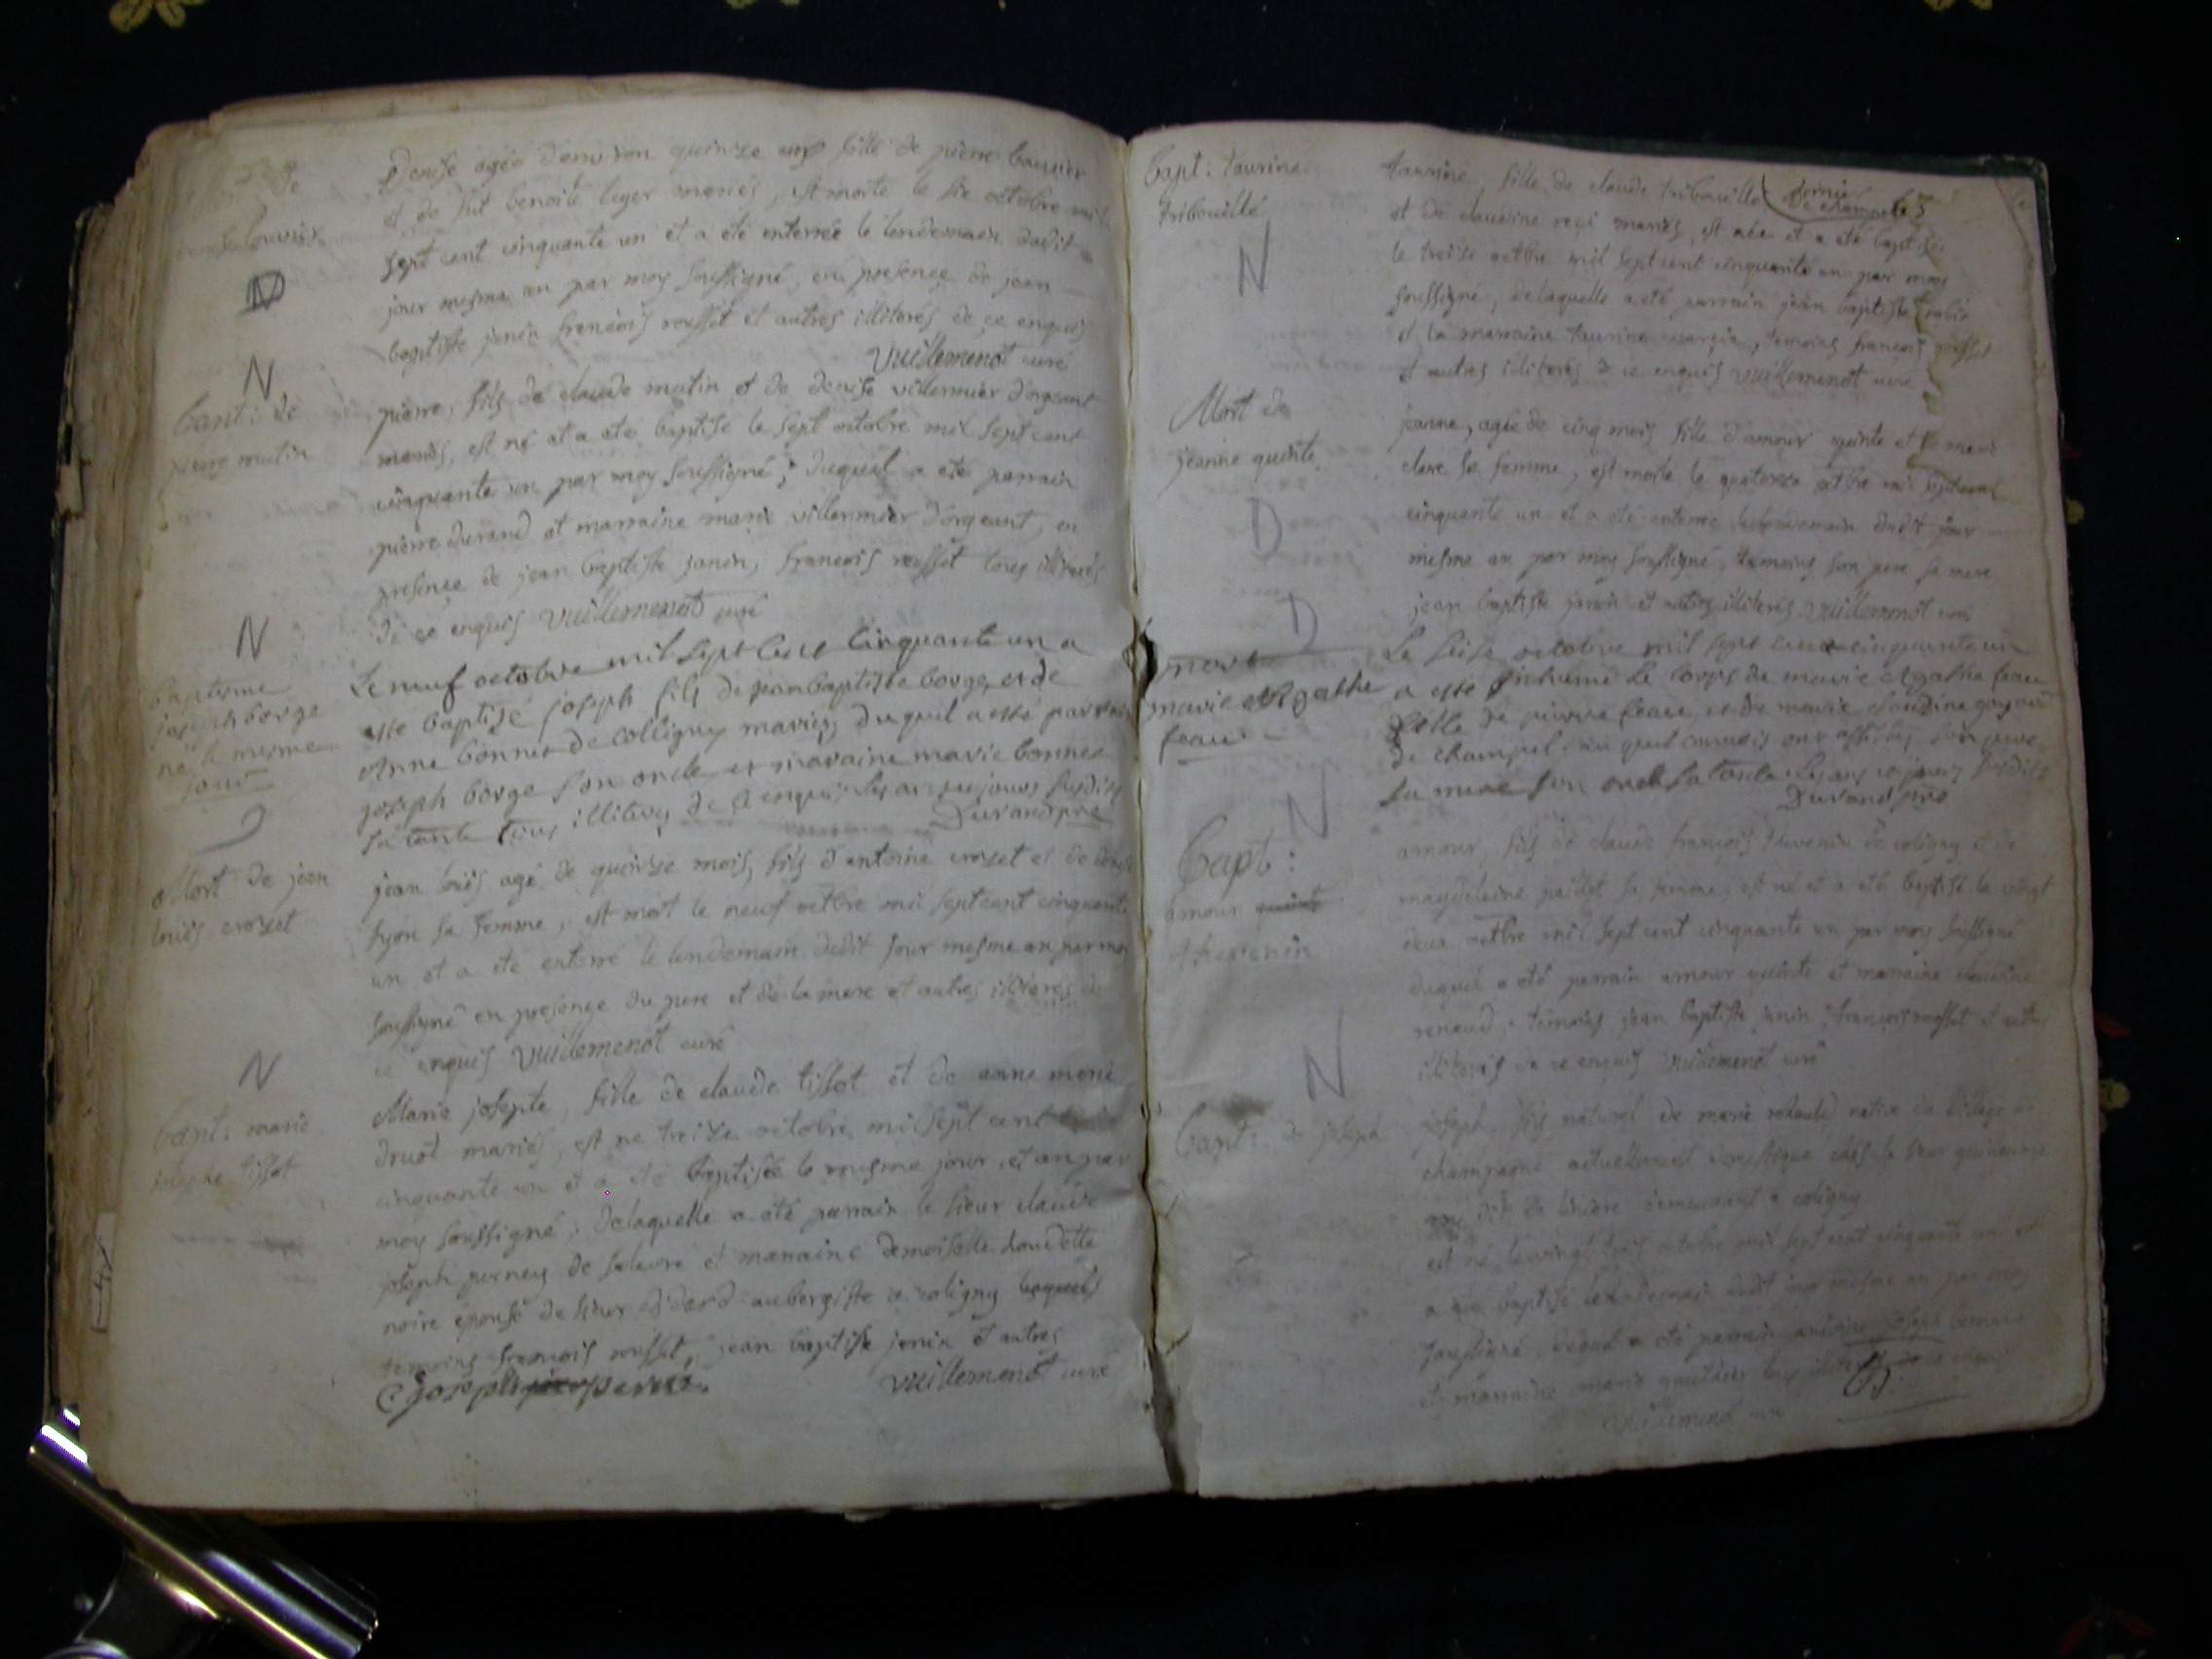 Denise agée d'environ quinze ans fille de pierre bouvier
et de fut benoite leger mariés, est morte le six octobre mil
sept cent cinquante un et a eté enterrée le lendemain dudit
jour mesme an par moy soussigné, en presence de jean
baptiste janin francois rousset et autres illiterés de ce enquis
Vuillemenot curé
N
bapt: de
pierre mutin
pierre, fils de claude mutin et de denise villermier d'orgeant
mariés, est né et a eté baptisé le sept octobre mil sept cent
cinquante un par moy soussigné; duquel a eté parrain
pierre durand et marraine marie villermier d'orgeant, en
presence de jean baptiste janin, francois rousset tous illiterés
de ce enquis Vuillemenot curé
N
baptesme
joseph borge
né le mesme
jour
Le neuf octobre mil sept cent cinquante un a
esté baptisé joseph fils de jean baptiste borge, et de
Anne bonnet de colligny mariés, duquel a esté parrain
joseph borge son oncle et maraine marie bonnet
sa tante tous illiterés de ce enquis les an et jours susdits
Durand pre
Mort de jean
louis crozet
jean louis agé de quinze mois, fils d'antoine crozet et de denise
lyon sa femme, est mort le neuf octbre mil sept cent cinquante
un et a eté enterré le lendemain dudit jour mesme an par moy
soussigné en presence du pere et de la mere et autres illiterés de
ce enquis Vuillemenot curé
N
bapt: marie
josephe tissot
Marie josepte, fille de claude tissot et de anne marie
druot mariés, est née treize octobre mil sept cent
cinquante un et a eté baptisée le mesme jour et an par
moy soussigné; de laquelle a eté parrain le sieur claude
joseph perney de salavre et marraine demoiselle
noire epouse de sieur didard aubergiste a coligny
temoins francois rousset, jean baptiste janin et autres
C joseph
Vuillemenot curé
bapt: taurine
tribouillé
N
taurine, fille de claude tribouillé
65
et de claudine mariés, est née et a eté baptisée
le treize octbre mil sept cent cinquante un par moy
soussigné, de laquelle a eté parrain jean baptiste
et la marraine taurine, temoins francois rousset
et autres illiterés de ce enquis Vuillemenot curé
Mort de
jeanne quinte
D
jeanne, agée de cinq mois fille d'amour quinte et de marie
clere sa femme, est morte le quatorze octbre mil sept cent
cinquante un et a eté enterrée le lendemain dudit jour
mesme an par moy soussigné, temoins son pere sa mere
jean baptiste janin et autres illiterés Vuillemenot curé
D
mort
marie Agathe
feau
Le seise octobre mil sept cent cinquante un
a esté inhumé le corps de marie Agathe feau
fille de pierre feau, et de marie claudine
de champel au quel convois ont assistés son pere
sa mere son oncle sa tante Les ans et jours susdits
Durand pre
N
bapt:
amour
thevenin
amour, fils de claude francois thevenin de coligny et de
magdeleine paillot sa femme, est né et a eté baptisé le vingt
deux octbre mil sept cent cinquante un par moy soussigné
duquel a eté parrain amour quinte et marraine claudine
renaud; temoins jean baptiste janin, francois rousset et autres
illiterés de ce enquis Vuillemenot curé
N
bapt: de joseph
joseph, fils naturel de marie native du village de
champagne actuellement domestique chés le sieur
dit de demeurant a coligny
est né le vingt trois octobre mil sept cent cinquante un et
a eté baptisé le lendemain dudit jour mesme an par moy
soussigné, duquel a eté parrain antoine joseph
et marraine marie gauthier tous illiterés de ce enquis
Vuillemenot curé